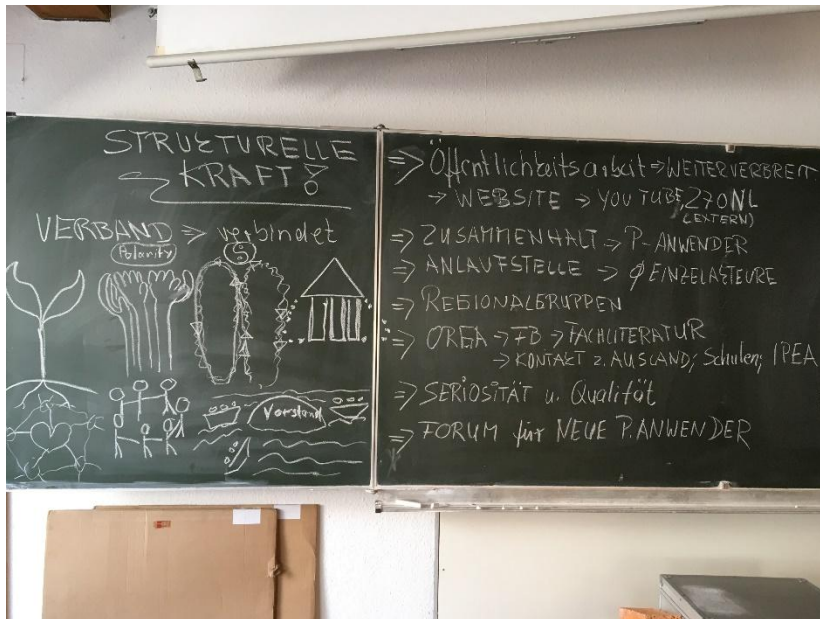 STRUKTURELLE
KRAFT!
VERBAND ⇒ verbindet
Polarity
Vorstand
⇒ Öffentlichkeitsarbeit → WEITERVERBREIT
→ WEBSITE → YOUTUBE,
(EXTERN)
⇒ ZUSAMMENHALT → P-ANWENDER
⇒ ANLAUFSTELLE → Ø EINZELAKTEURE
⇒ REGIONALGRUPPEN
⇒ ORGA → FB → FACHLITERATUR
→ KONTAKT z. AUSLAND; Schulen; IPEA
⇒ SERIOSITÄT u. Qualität
⇒ FORUM für NEUE P.ANWENDER